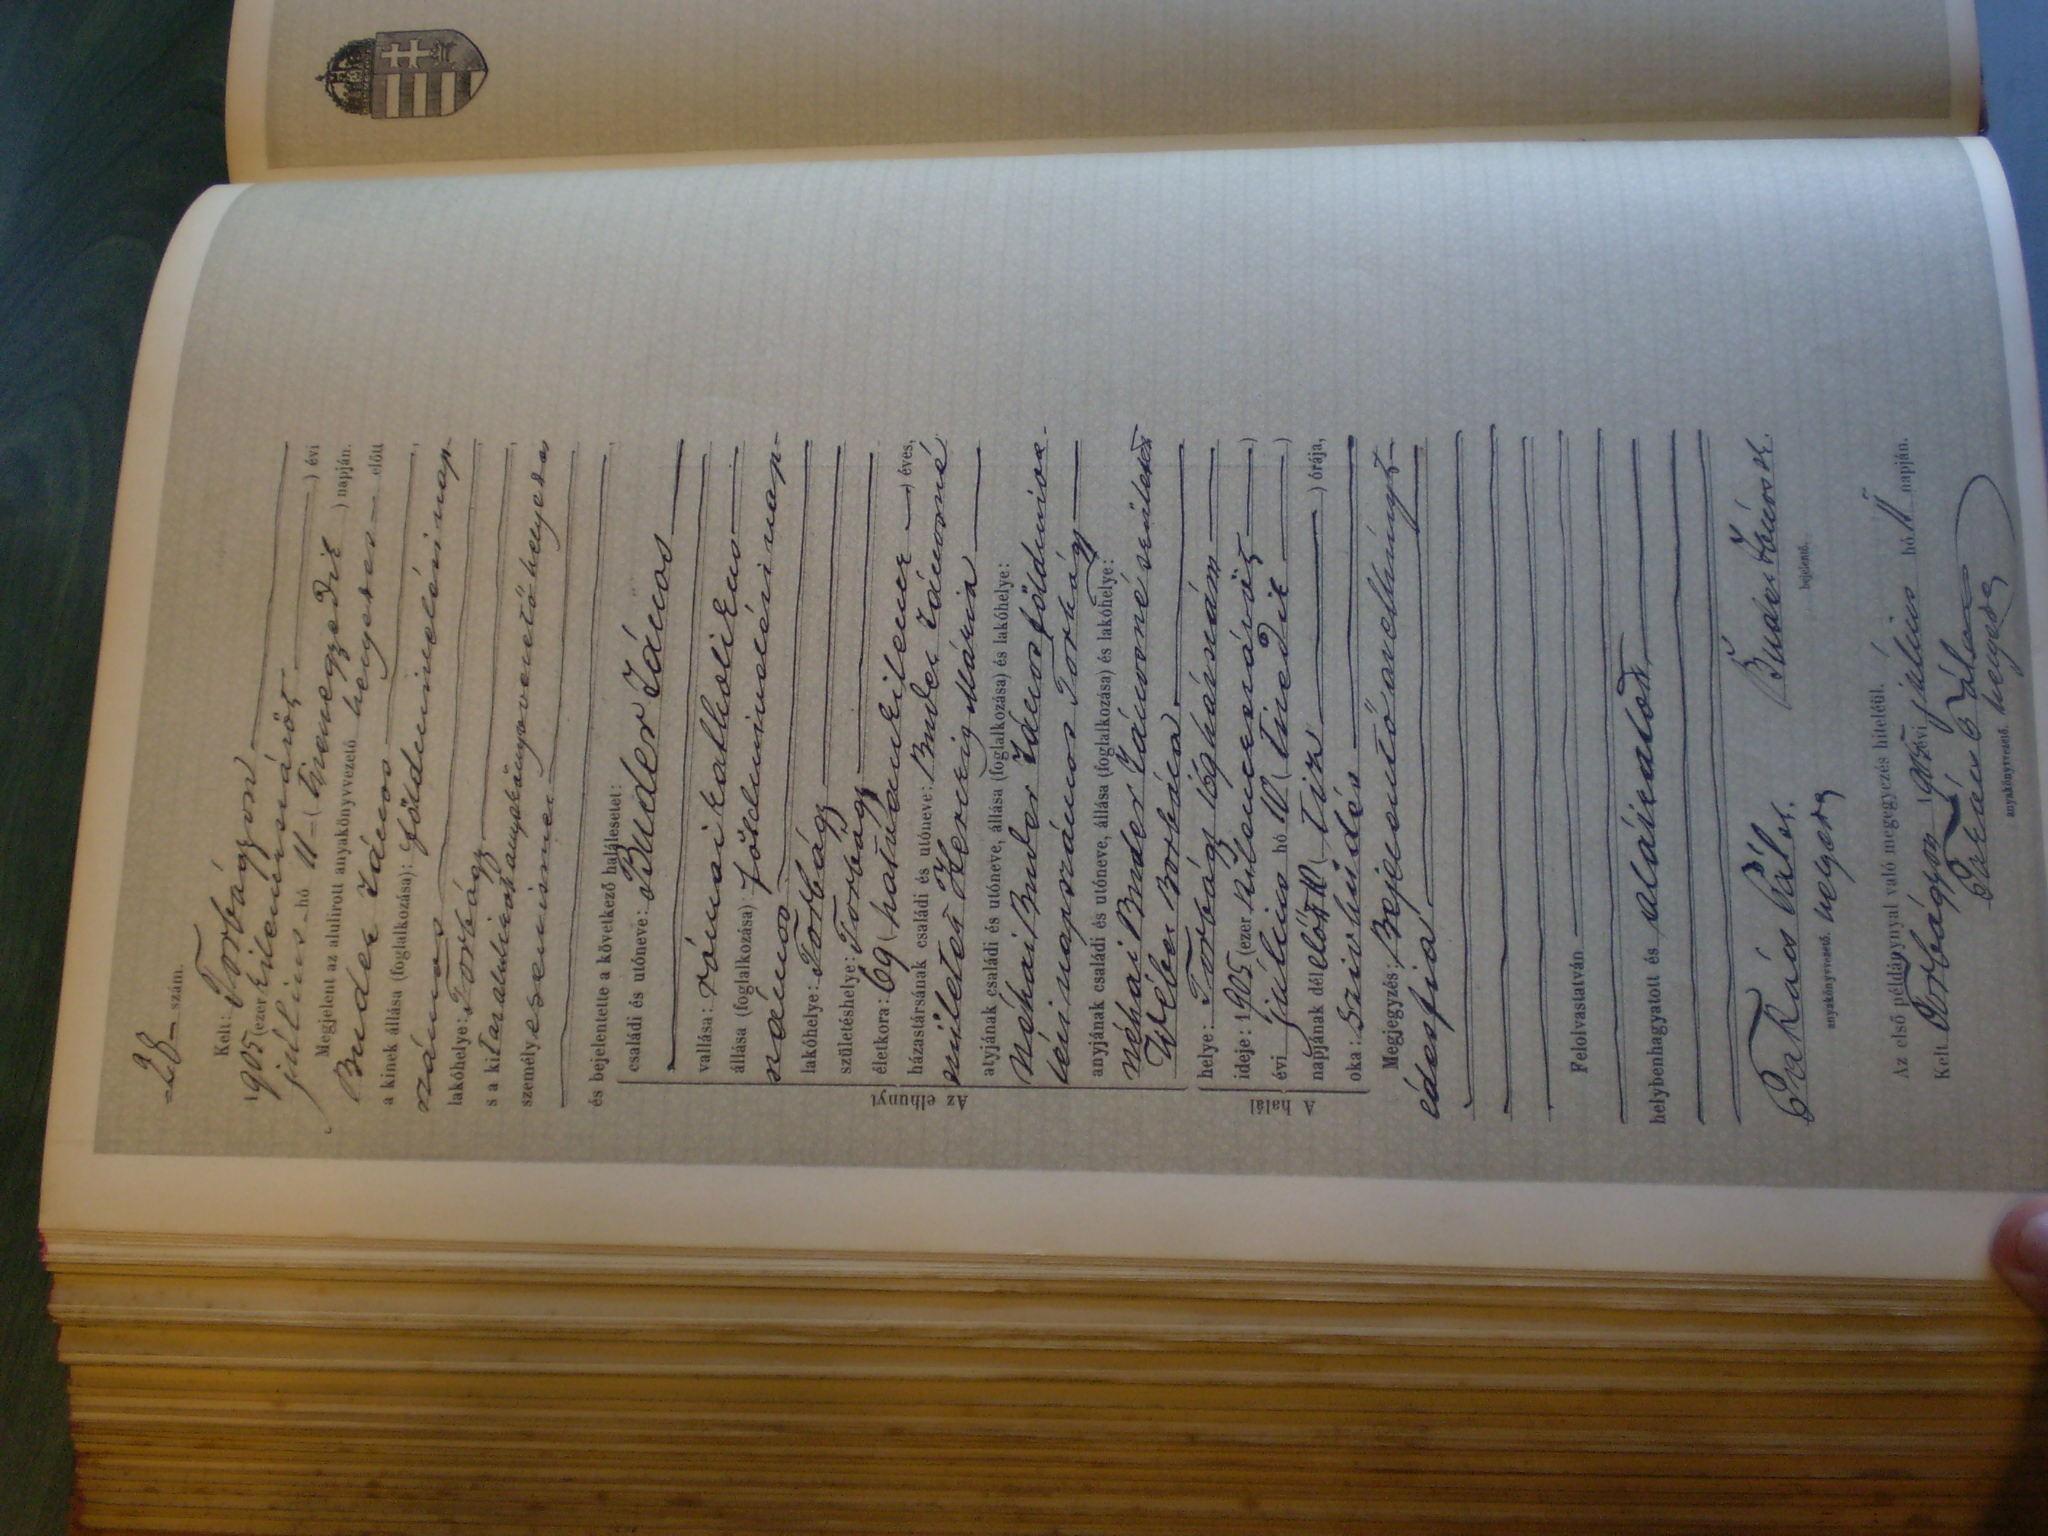 28 szám.
Kelt: Torbágyon
1905 (ezerkilencszázöt) évi
július hó 11 (tizenegyedik) napján.
Megjelent az alulirott anyakönyvvezető helyettes előtt
Buder János
a kinek állása (foglalkozása): földmivelési nap-
számos
lakóhelye: Torbágy
s a kit az alulirott anyakönyvvezető helyettes
személyesen ismer
és bejelentette a következő halálesetet:
Az elhunyt
családi és utóneve: Buder János
vallása: római katholikus
állása (foglalkozása) földmivelési nap-
számos
lakóhelye: Torbágy
születéshelye: Torbágy
életkora: 69 (hatvankilenc) éves,
házastársának családi és utóneve: Buder Jánosné
született Herczig Mária
atyjának családi és utóneve, állása (foglalkozása) és lakóhelye:
néhai Buder János földmive-
lési napszámos Torbágy
anyjának családi és utóneve, állása (foglalkozása) és lakóhelye:
néhai Buder Jánosné született
Wéber Borbára
A halál
helye: Torbágy 169 házszám
ideje: 1905 (ezerkilencszázöt)
évi július hó 10 (tizedik)
napjának délelőtt 10 (tiz) órája,
oka: Szivhűdés
Megjegyzés: Bejelentő az elhúnyt
édesfia
Felolvastatván
helybenhagyatott és aláiratott
Pál
anyakönyvvezető. helyettes
Buder János
bejelentő.
Az első példánynyal való megegyezés hiteléül.
Kelt Torbágyon 1905 évi július hó 11 napján.
anyakönyvvezető. helyettes